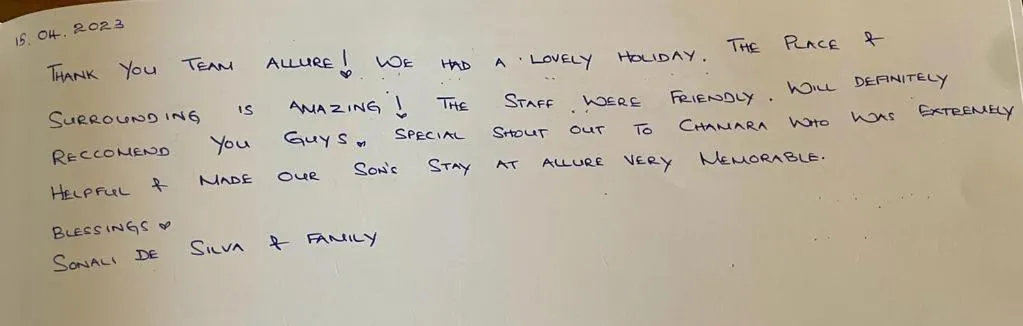 15.04.2023
THANK YOU TEAM ALLURE! WE HAD A LOVELY HOLIDAY. THE PLACE &
SURROUNDING IS AMAZING! THE STAFF WERE FRIENDLY. WILL DEFINITELY
RECCOMEND YOU GUYS ♡ SPECIAL SHOUT OUT TO CHAMARA WHO WAS EXTREEMELY
HELPFUL & MADE OUR SON'S STAY AT ALLURE VERY MEMORABLE.
BLESSINGS ♡
SONALI DE SILVA & FAMILY